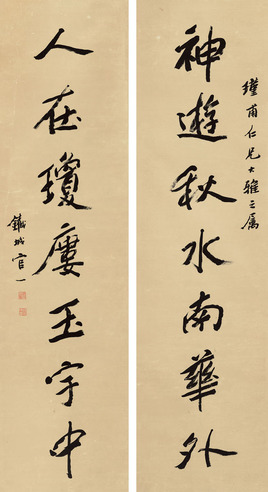 瑾甫仁兄大雅之屬
神遊秋水南華外
人在瓊廔玉宇中
鐵城官一